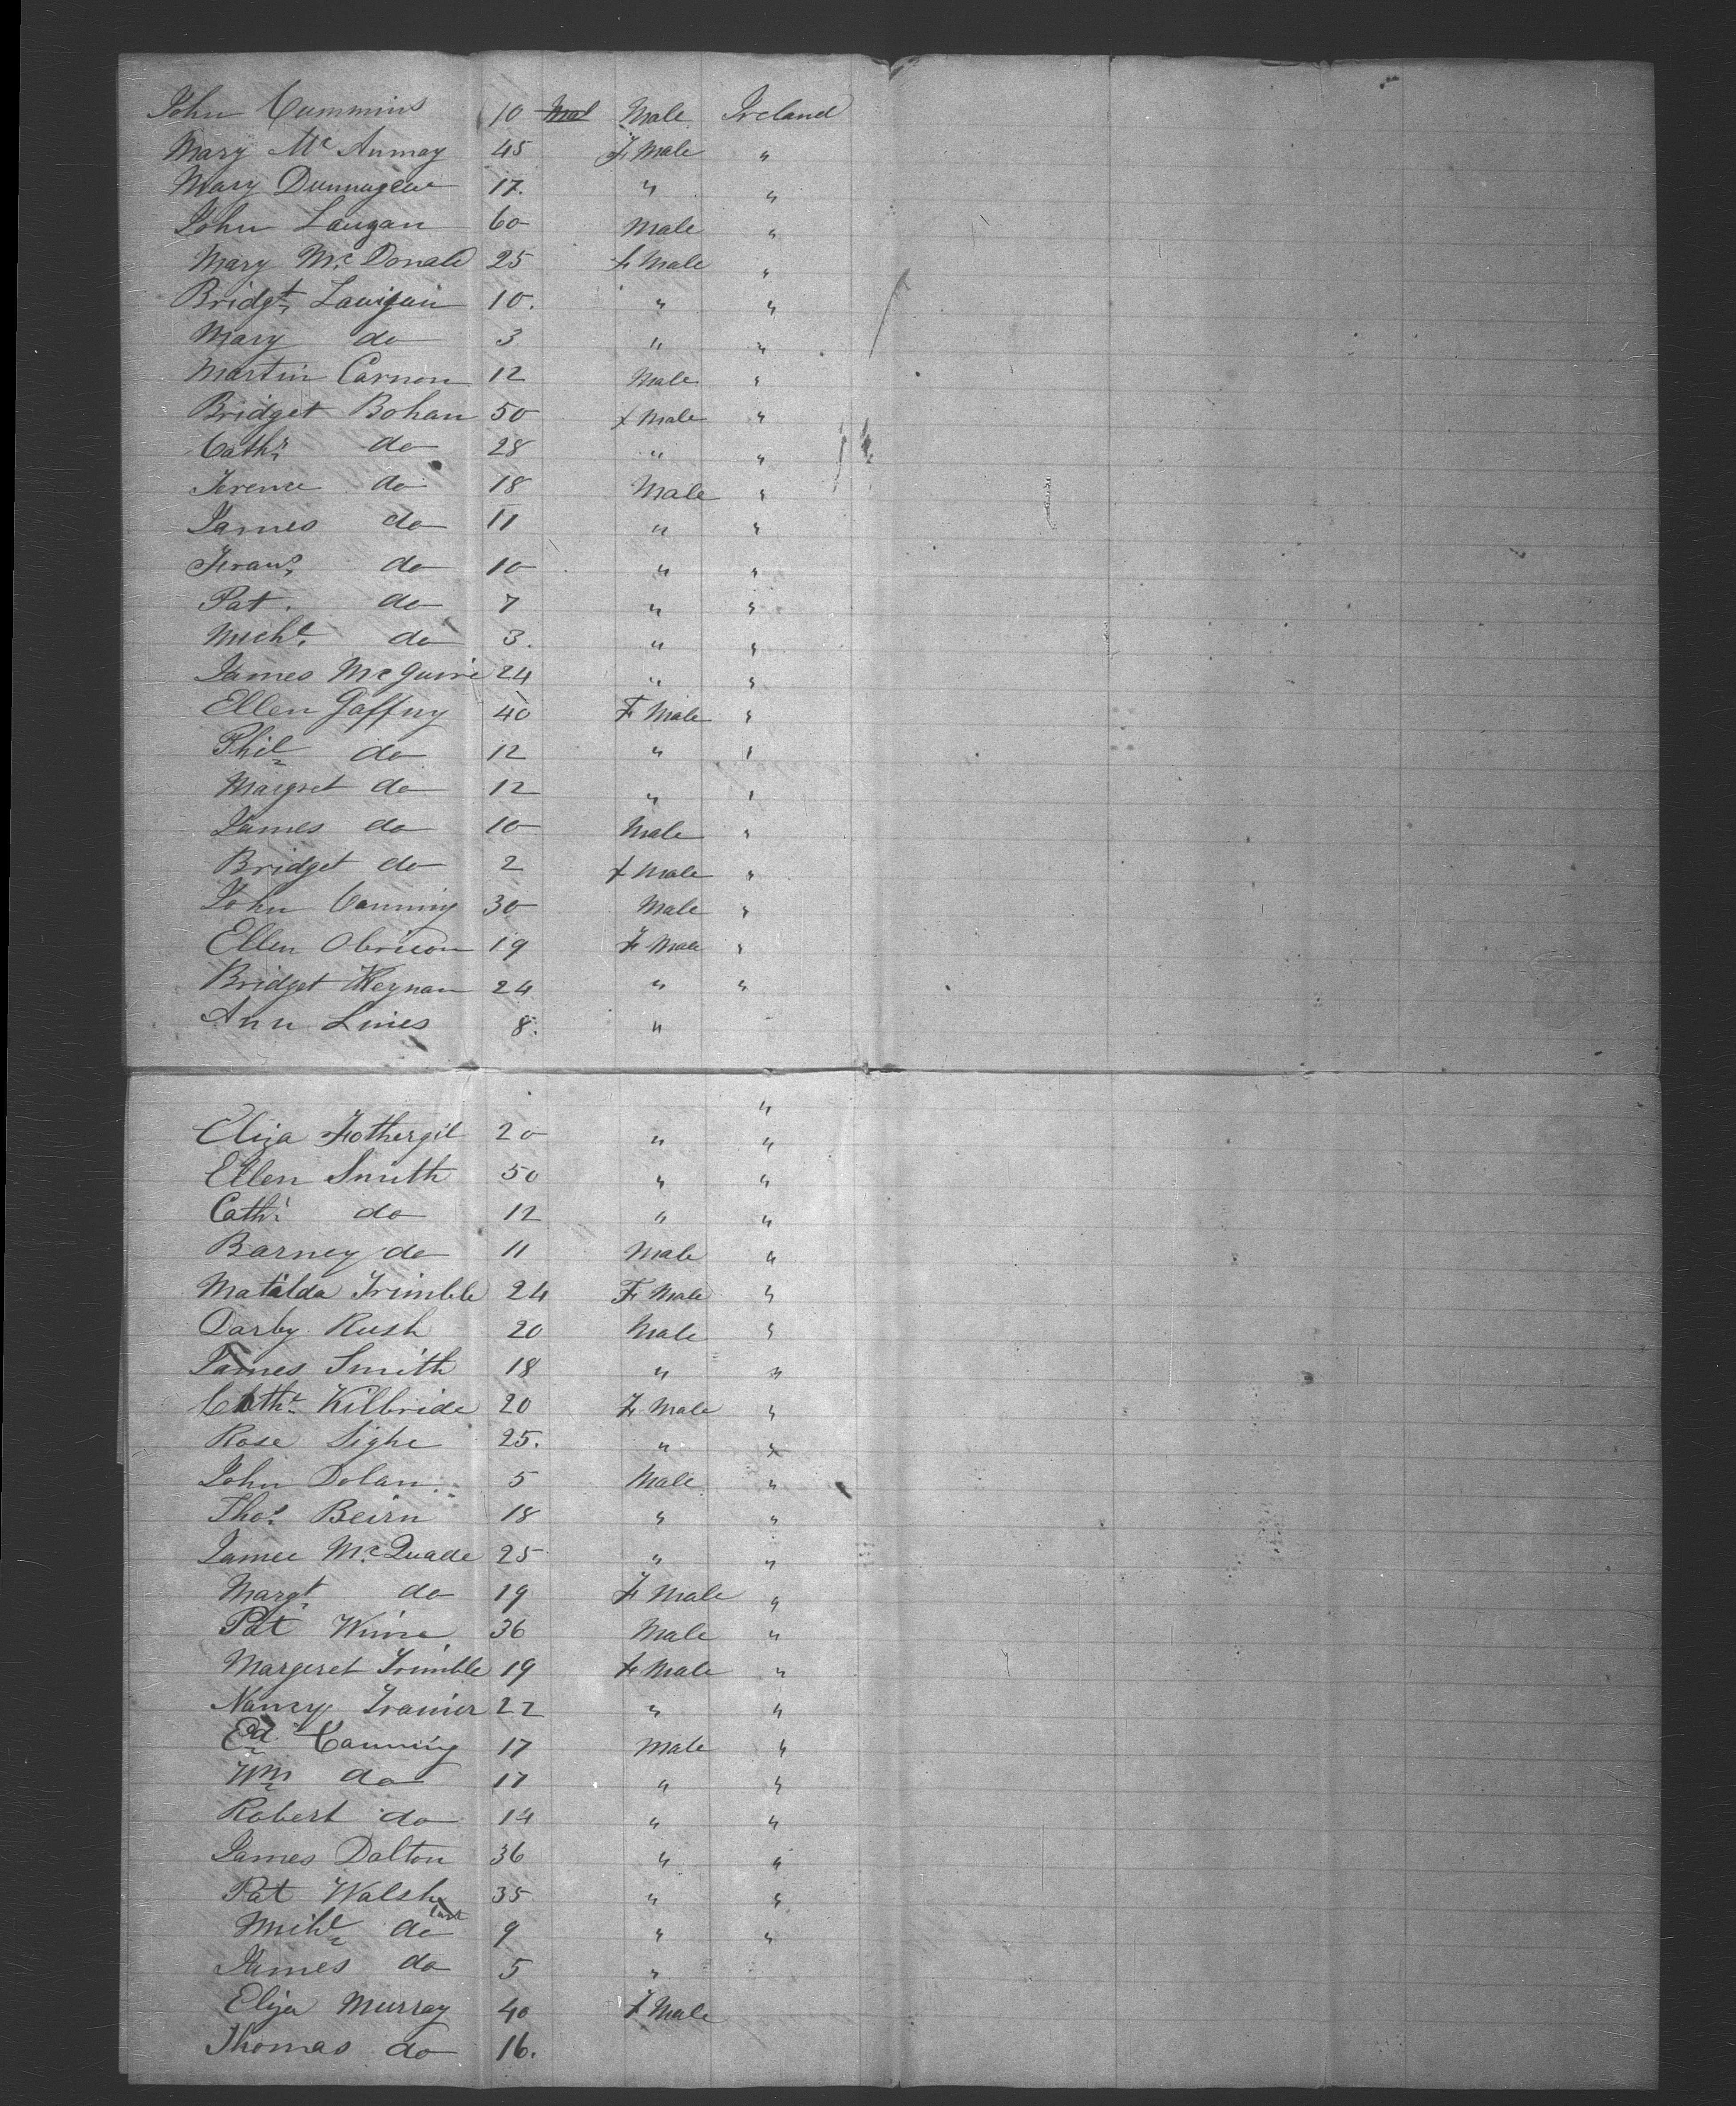 John Cummins 10 Mal Male Ireland
Mary Mc 45 F Male "
Mary 17. " "
John Langan 60 Male "
Mary Mc Donald 25 F Male "
Bridgt 10. " "
Mary do 3 " "
Martin Carnon 12 Male "
Bridget Bohan 50 F Male "
Cathr do 28 " "
Terence do 18 Male "
James do 11 " "
Frans do 10 " "
Pat. do 7 " "
Michl do 3. " "
James McGuire 24 " "
Ellen Gaffny 40 F Male "
Phil do 12 " "
Margret do 12 " "
James do 10 Male "
Bridget do 2 F Male "
John Canning 30 Male "
Ellen 19 F Male "
Bridget Heynan 24 " "
Ann Lines 8. "
"
Eliza Fothergil 20 " "
Ellen Smith 50 " "
Cathr do 12 " "
Barney do 11 Male "
Matilda Trimble 24 F Male "
Darby Rush 20 Male "
James Smith 18 " "
Cathe Kilbride 20 F Male "
Rose Tighe 25. " "
John Dolan 5 Male "
Thos Beirn 18 " "
James McQuade 25 " "
Margt do 19 F Male "
Pat 36 Male "
Margeret Trimble 19 F Male "
Nancy 22 " "
Ed Canning 17 Male "
Wm do 17 " "
Robert do 14 " "
James Dalton 36 " "
Pat Walsh 35 " "
Michl do 9 " "
James do 5 "
Eliza Murray 40 F Male
Thomas do 16.